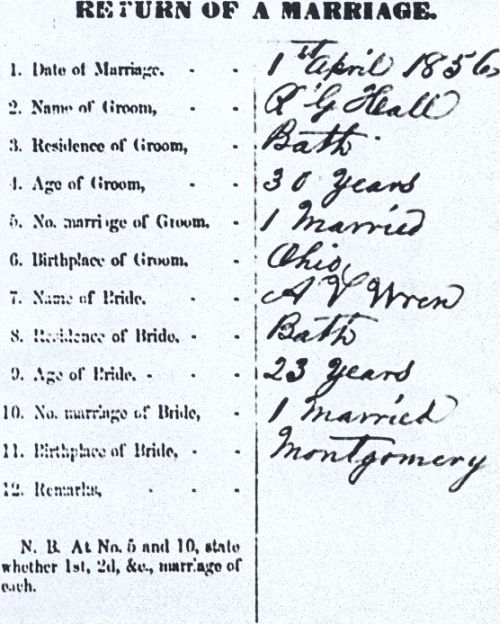 RETURN OF A MARRIAGE.
1. Date of Marriage. - - 1st April 1856
2. Name of Groom, - - R G Heall
3. Residence of Groom, - Bath
4. Age of Groom, - - 30 Years
5. No. marriage of Groom. - 1 Married
6. Birthplace of Groom. - Ohio
7. Name of Bride. - - A V Wren
8. Residence of Bride. - - Bath
9. Age of Bride. - - - 23 Years
10. No. marriage of Bride, - 1 Married
11. Birthplace of Bride, - - Montgomery
12. Remarks, - - -
N. B. At No. 5 and 10, state
whether 1st, 2d, &c., marriage of
each.